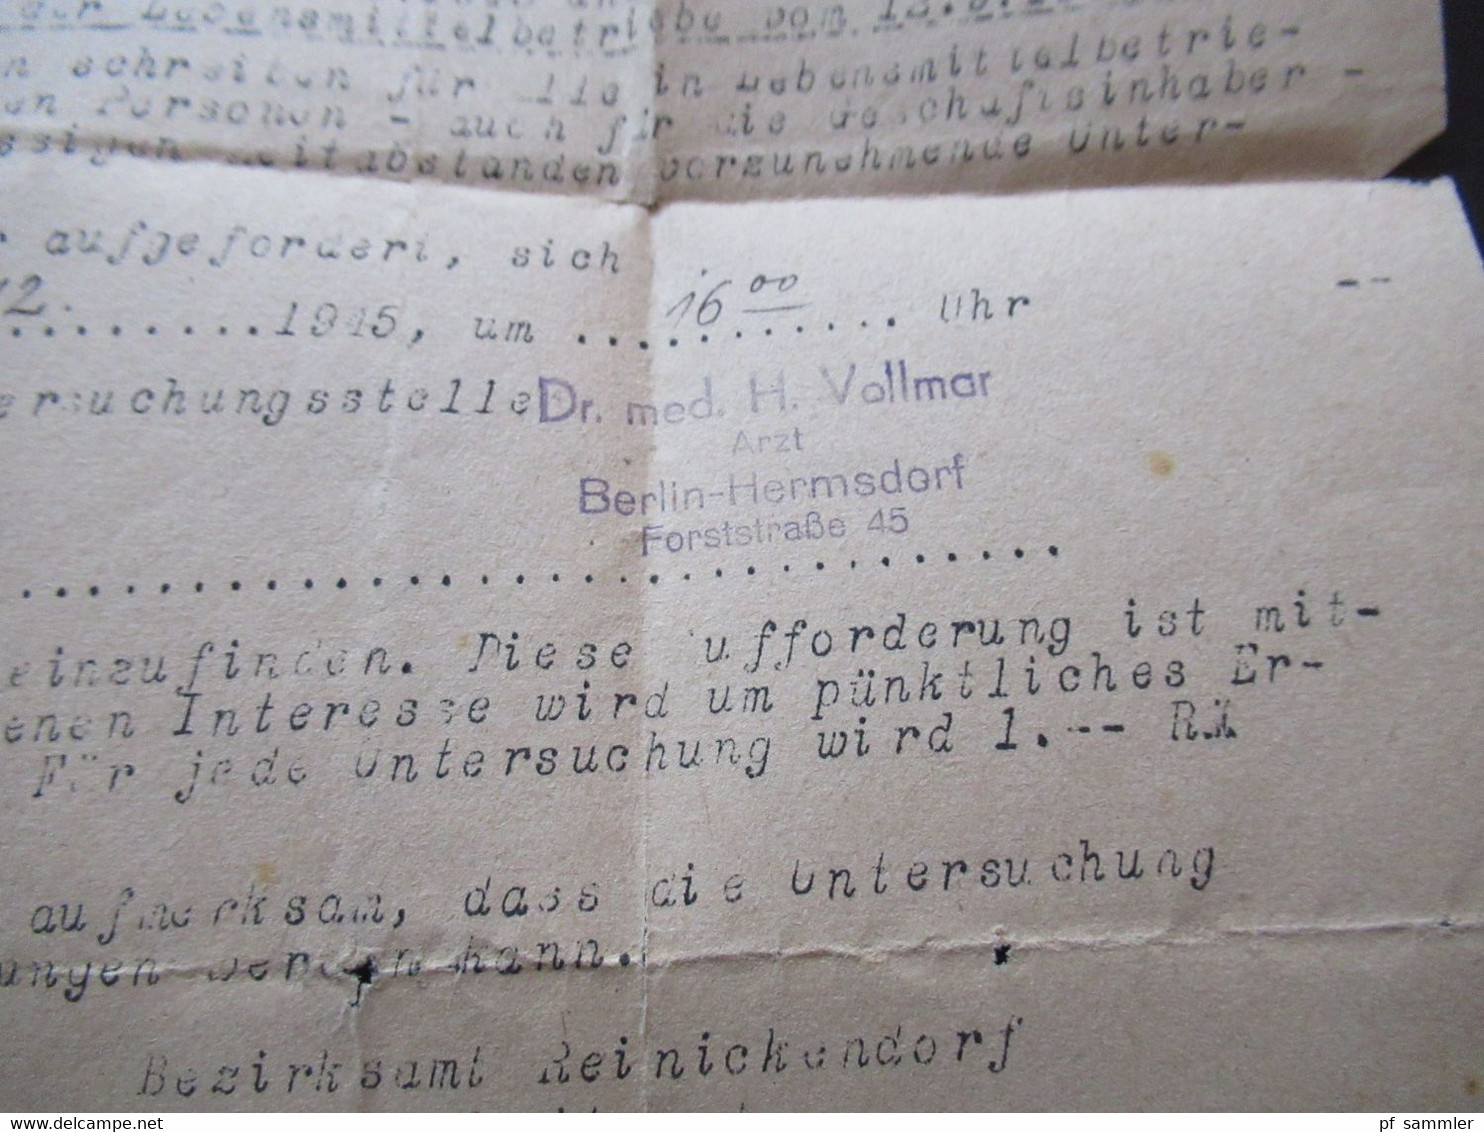 der Lebensmittelbetriebe vom 12.
n schreiben für die in Lebensmittelbetrie-
en Personen - auch für die Geschäftsinhaber -
ssigen Zeitabständen vorzunehmende Unter-
r aufgefordert, sich
12. ......... 1945, um ... 16 00 ... Uhr --
ersuchungsstelle Dr. med. H. Vollmar
Arzt
Berlin-Hermsdorf
Forststraße 45
einzufinden. Diese ufforderung ist mit-
enen Interesse wird um pünktliches Er-
Für jede Untersuchung wird 1.-- RM
aufmerksam, dass die Untersuchung
ungen werden kann.
Bezirksamt Reinickendorf
pf sammler